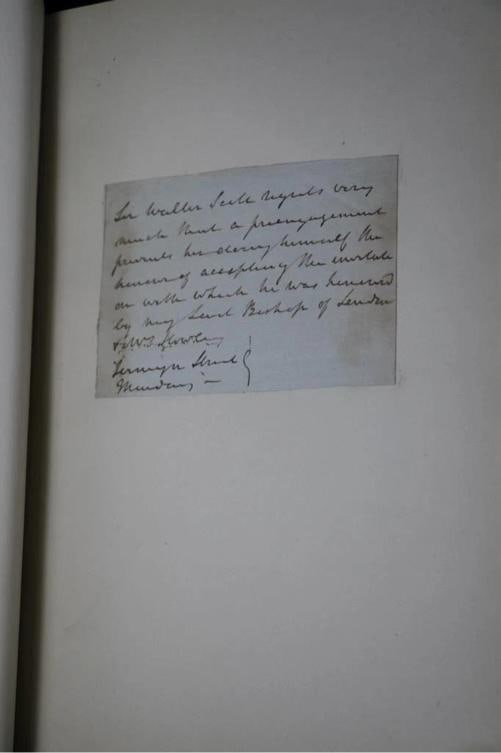 Sir Walter Scott regrets very
much that a preengagement
prevents his doing himself the
honour of accepting the invitati
on with which he was honourd
by my Lord Bishop of London
&
Jermyn Street
Monday —